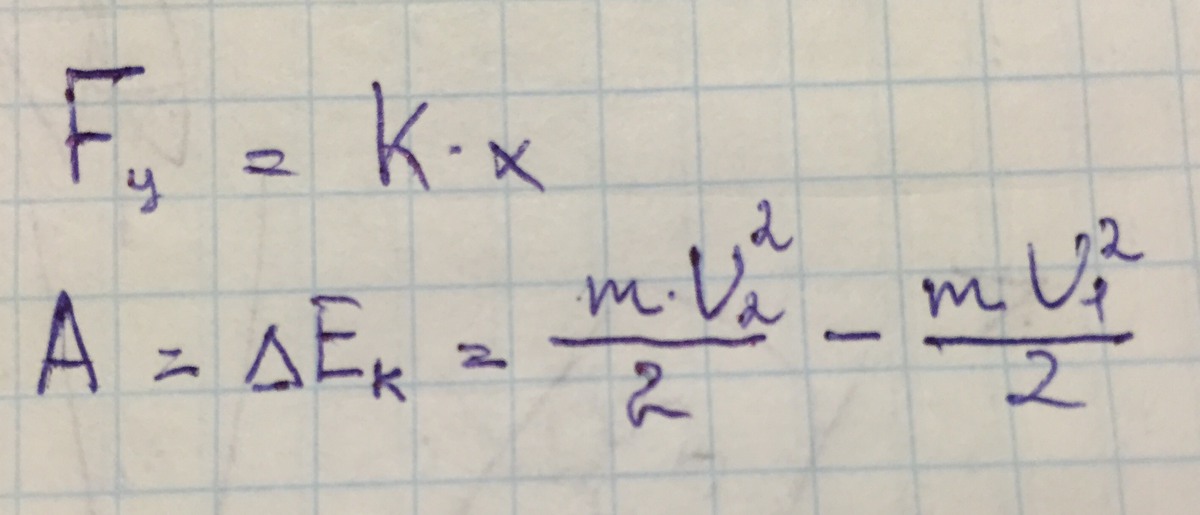 Fу = K · x
A = ΔEк = m · V₂² / 2 − m V₁² / 2